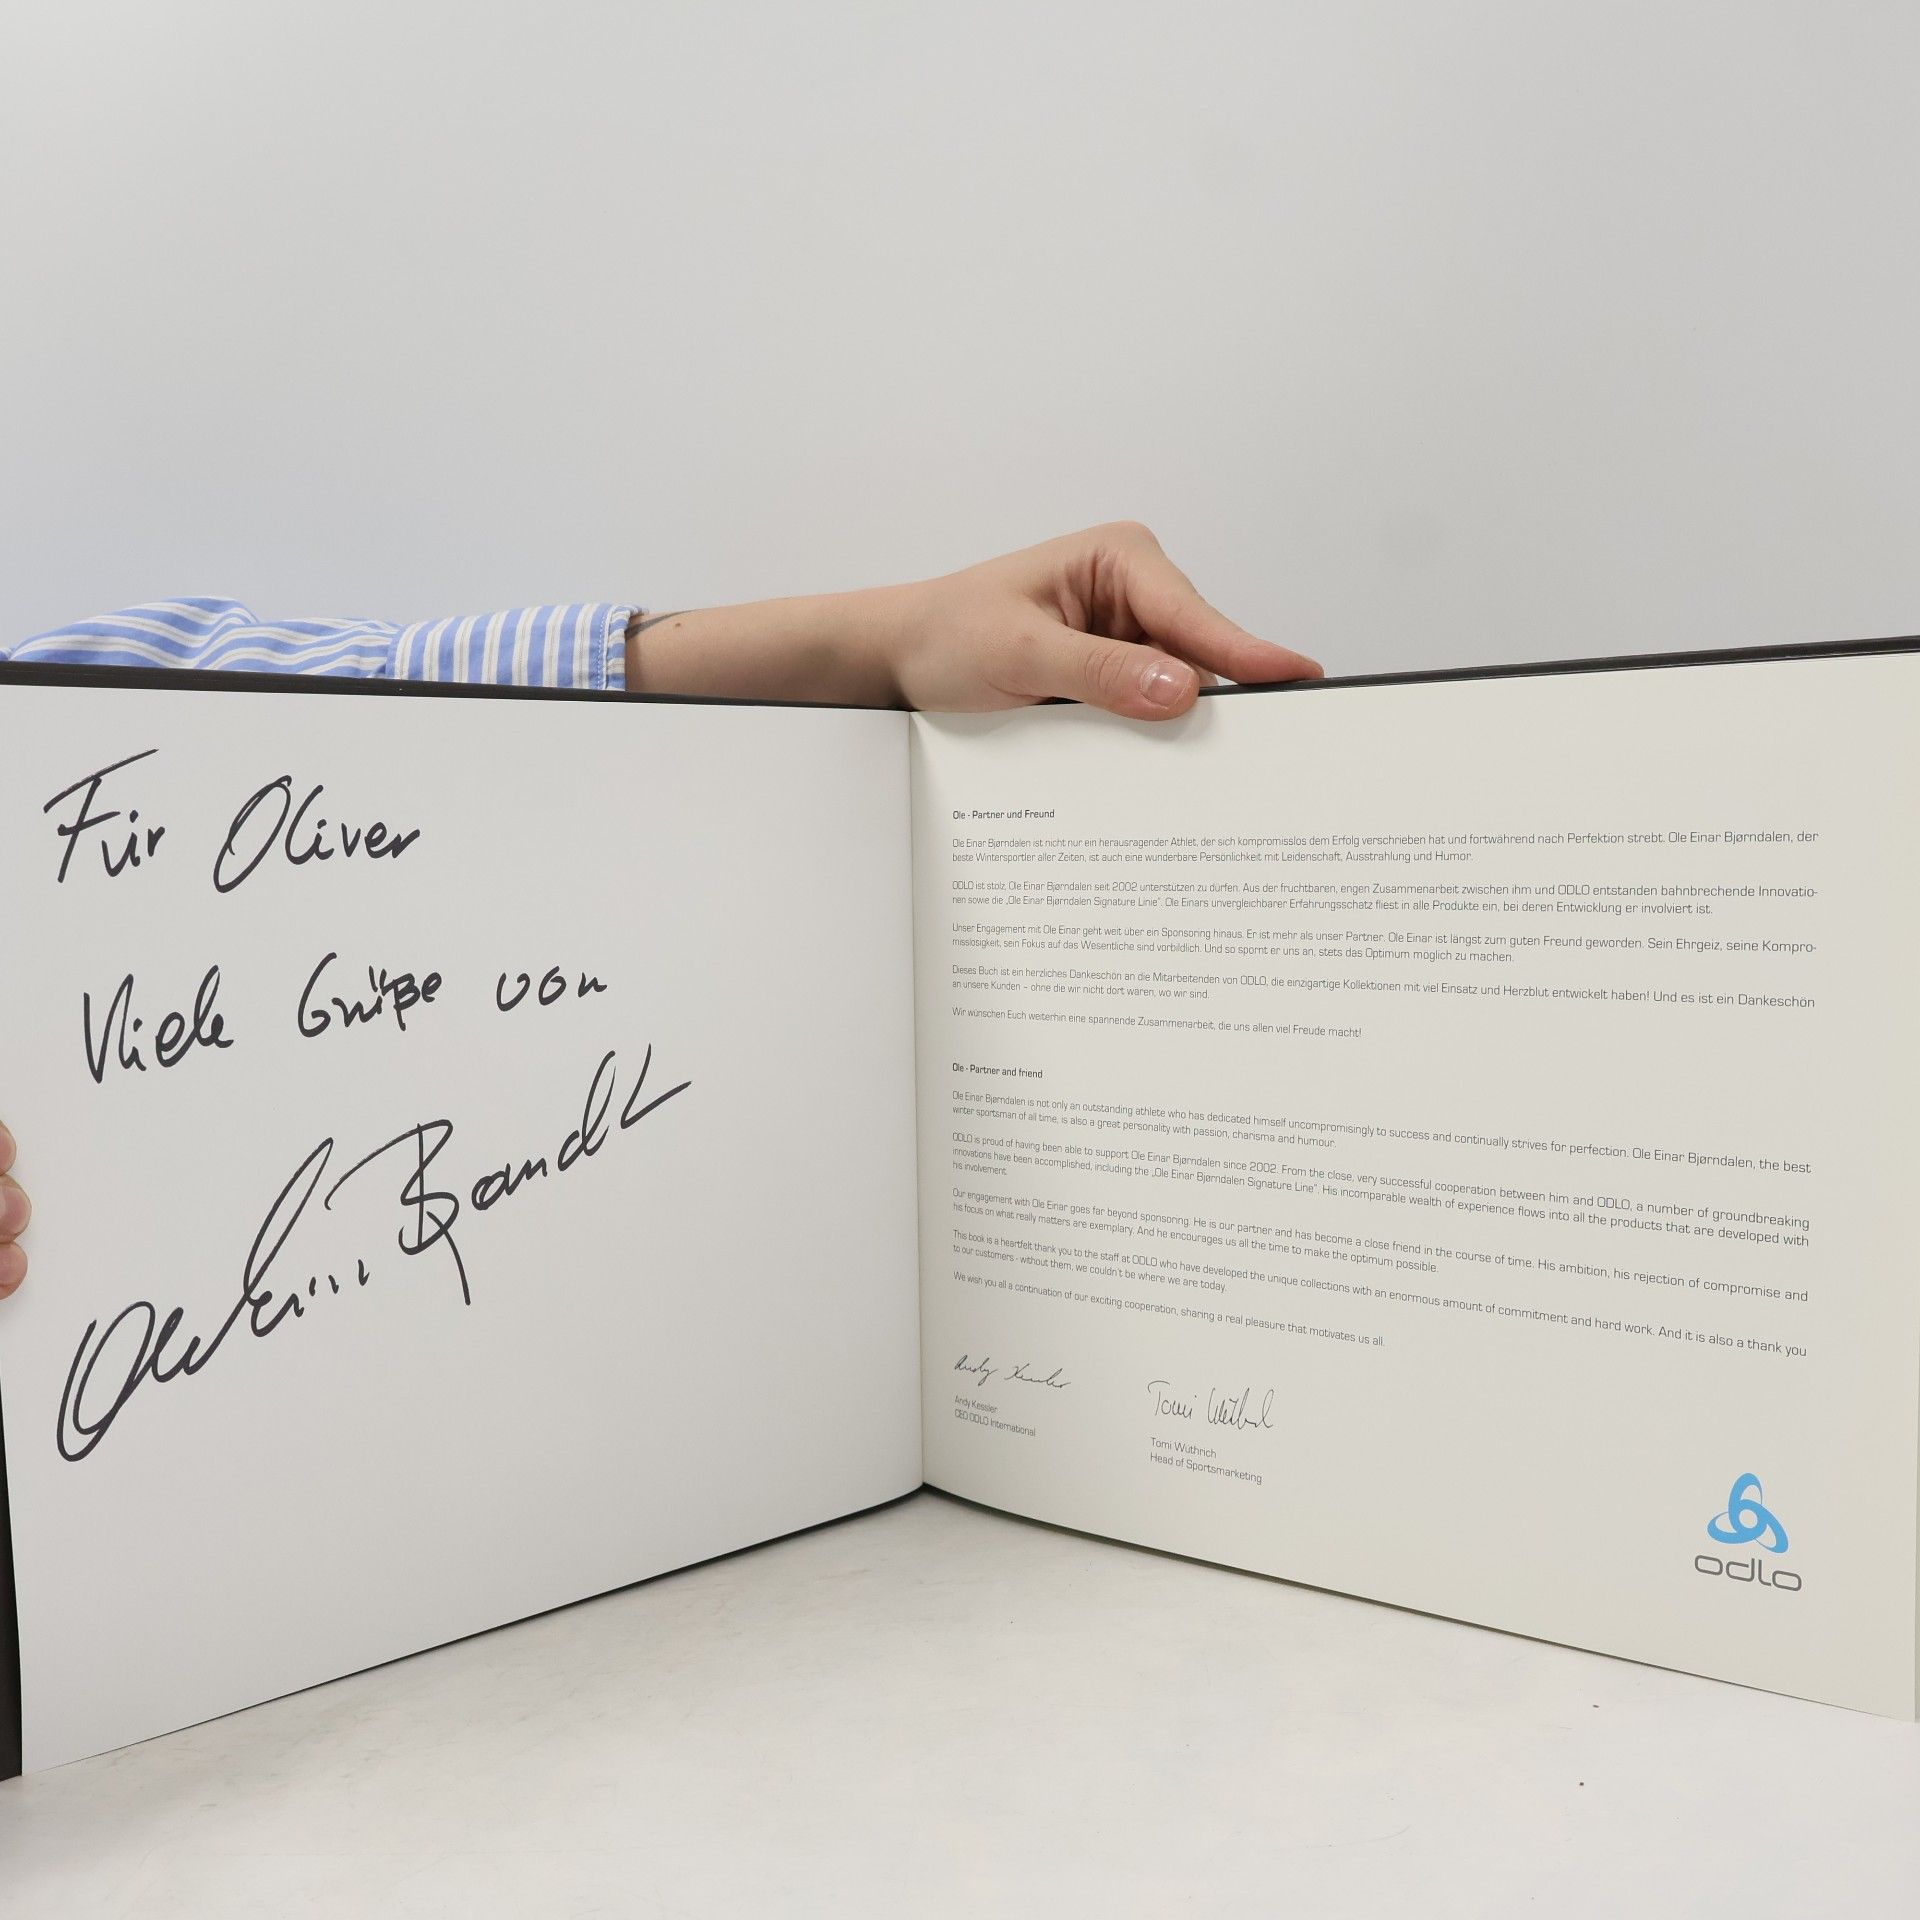 Für Oliver
Viele Grüße von
Ole - Partner und Freund
Ole Einar Bjørndalen ist nicht nur ein herausragender Athlet, der sich kompromisslos dem Erfolg verschrieben hat und fortwährend nach Perfektion strebt. Ole Einar Bjørndalen, der
beste Wintersportler aller Zeiten, ist auch eine wunderbare Persönlichkeit mit Leidenschaft, Ausstrahlung und Humor.
ODLO ist stolz, Ole Einar Bjørndalen seit 2002 unterstützen zu dürfen. Aus der fruchtbaren, engen Zusammenarbeit zwischen ihm und ODLO entstanden bahnbrechende Innovatio-
nen sowie die „Ole Einar Bjørndalen Signature Linie". Ole Einars unvergleichbarer Erfahrungsschatz fliest in alle Produkte ein, bei deren Entwicklung er involviert ist.
Unser Engagement mit Ole Einar geht weit über ein Sponsoring hinaus. Er ist mehr als unser Partner. Ole Einar ist längst zum guten Freund geworden. Sein Ehrgeiz, seine Kompro-
misslosigkeit, sein Fokus auf das Wesentliche sind vorbildlich. Und so spornt er uns an, stets das Optimum möglich zu machen.
Dieses Buch ist ein herzliches Dankeschön an die Mitarbeitenden von ODLO, die einzigartige Kollektionen mit viel Einsatz und Herzblut entwickelt haben! Und es ist ein Dankeschön
an unsere Kunden – ohne die wir nicht dort wären, wo wir sind.
Wir wünschen Euch weiterhin eine spannende Zusammenarbeit, die uns allen viel Freude macht!
Ole - Partner and friend
Ole Einar Bjørndalen is not only an outstanding athlete who has dedicated himself uncompromisingly to success and continually strives for perfection. Ole Einar Bjørndalen, the best
winter sportsman of all time, is also a great personality with passion, charisma and humour.
ODLO is proud of having been able to support Ole Einar Bjørndalen since 2002. From the close, very successful cooperation between him and ODLO, a number of groundbreaking
innovations have been accomplished, including the „Ole Einar Bjørndalen Signature Line". His incomparable wealth of experience flows into all the products that are developed with
his involvement.
Our engagement with Ole Einar goes far beyond sponsoring. He is our partner and has become a close friend in the course of time. His ambition, his rejection of compromise and
his focus on what really matters are exemplary. And he encourages us all the time to make the optimum possible.
This book is a heartfelt thank you to the staff at ODLO who have developed the unique collections with an enormous amount of commitment and hard work. And it is also a thank you
to our customers - without them, we couldn't be where we are today.
We wish you all a continuation of our exciting cooperation, sharing a real pleasure that motivates us all.
Andy Kessler
Andy Kessler
CEO ODLO International
Tomi Wüthrich
Tomi Wüthrich
Head of Sportsmarketing
odlo